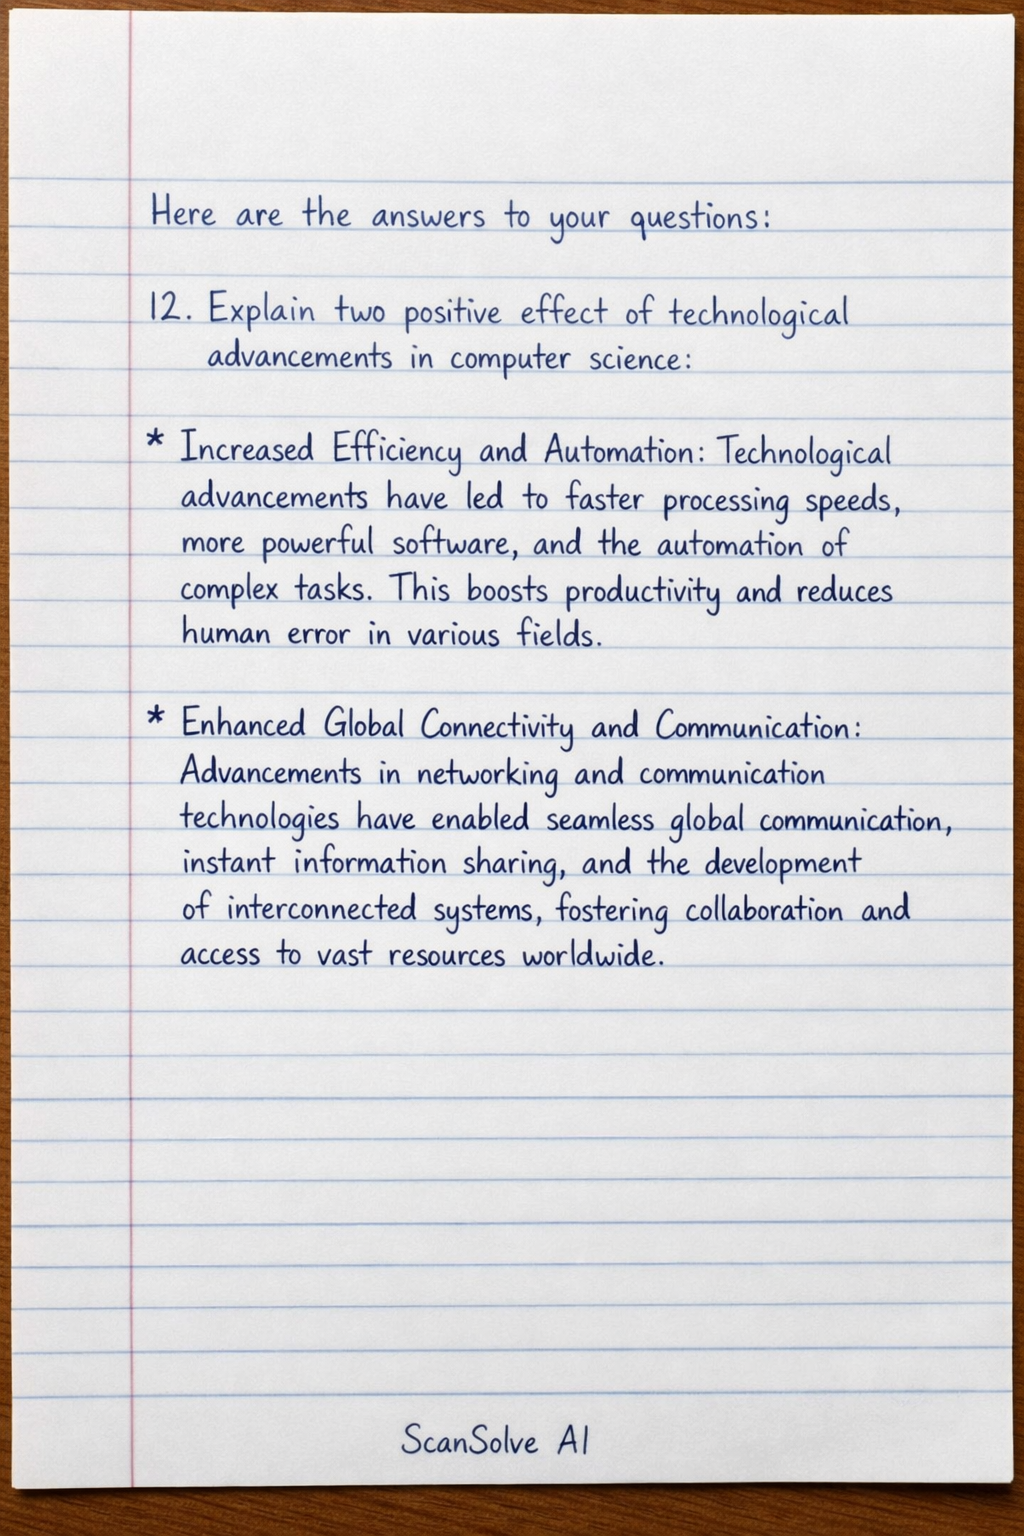 Here are the answers to your questions:
12. Explain two positive effect of technological
advancements in computer science:
* Increased Efficiency and Automation: Technological
advancements have led to faster processing speeds,
more powerful software, and the automation of
complex tasks. This boosts productivity and reduces
human error in various fields.
* Enhanced Global Connectivity and Communication:
Advancements in networking and communication
technologies have enabled seamless global communication,
instant information sharing, and the development
of interconnected systems, fostering collaboration and
access to vast resources worldwide.
ScanSolve AI